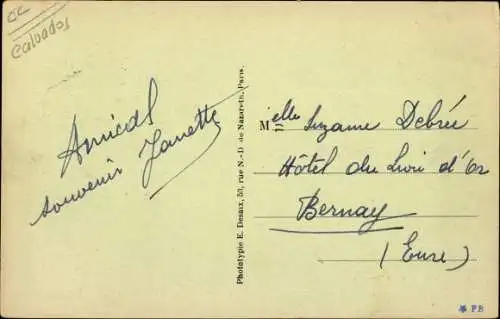 Calvados
Amical
souvenir Janette
Phototypie E. Desaix, 53, rue N.-D. de Nazareth, Paris.
Melle Suzanne Debrée
Hôtel du Lion d'Or
Bernay
(Eure)
PB